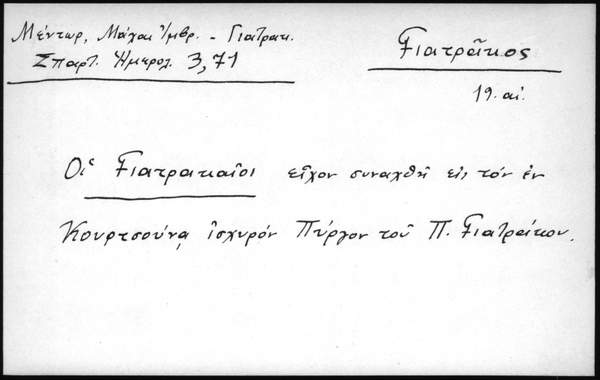 Μέντωρ, Μάχαι Ἰμβρ. - Γιατρακ.
Σπαρτ. Ἡμερολ. 3,71
Γιατρᾶκος
19. αἰ.
Οἱ Γιατρακαῖοι εἶχον συναχθῆ εἰς τόν ἐν
Κουρτσούνᾳ ἰσχυρόν Πύργον τοῦ Π. Γιατράκου.